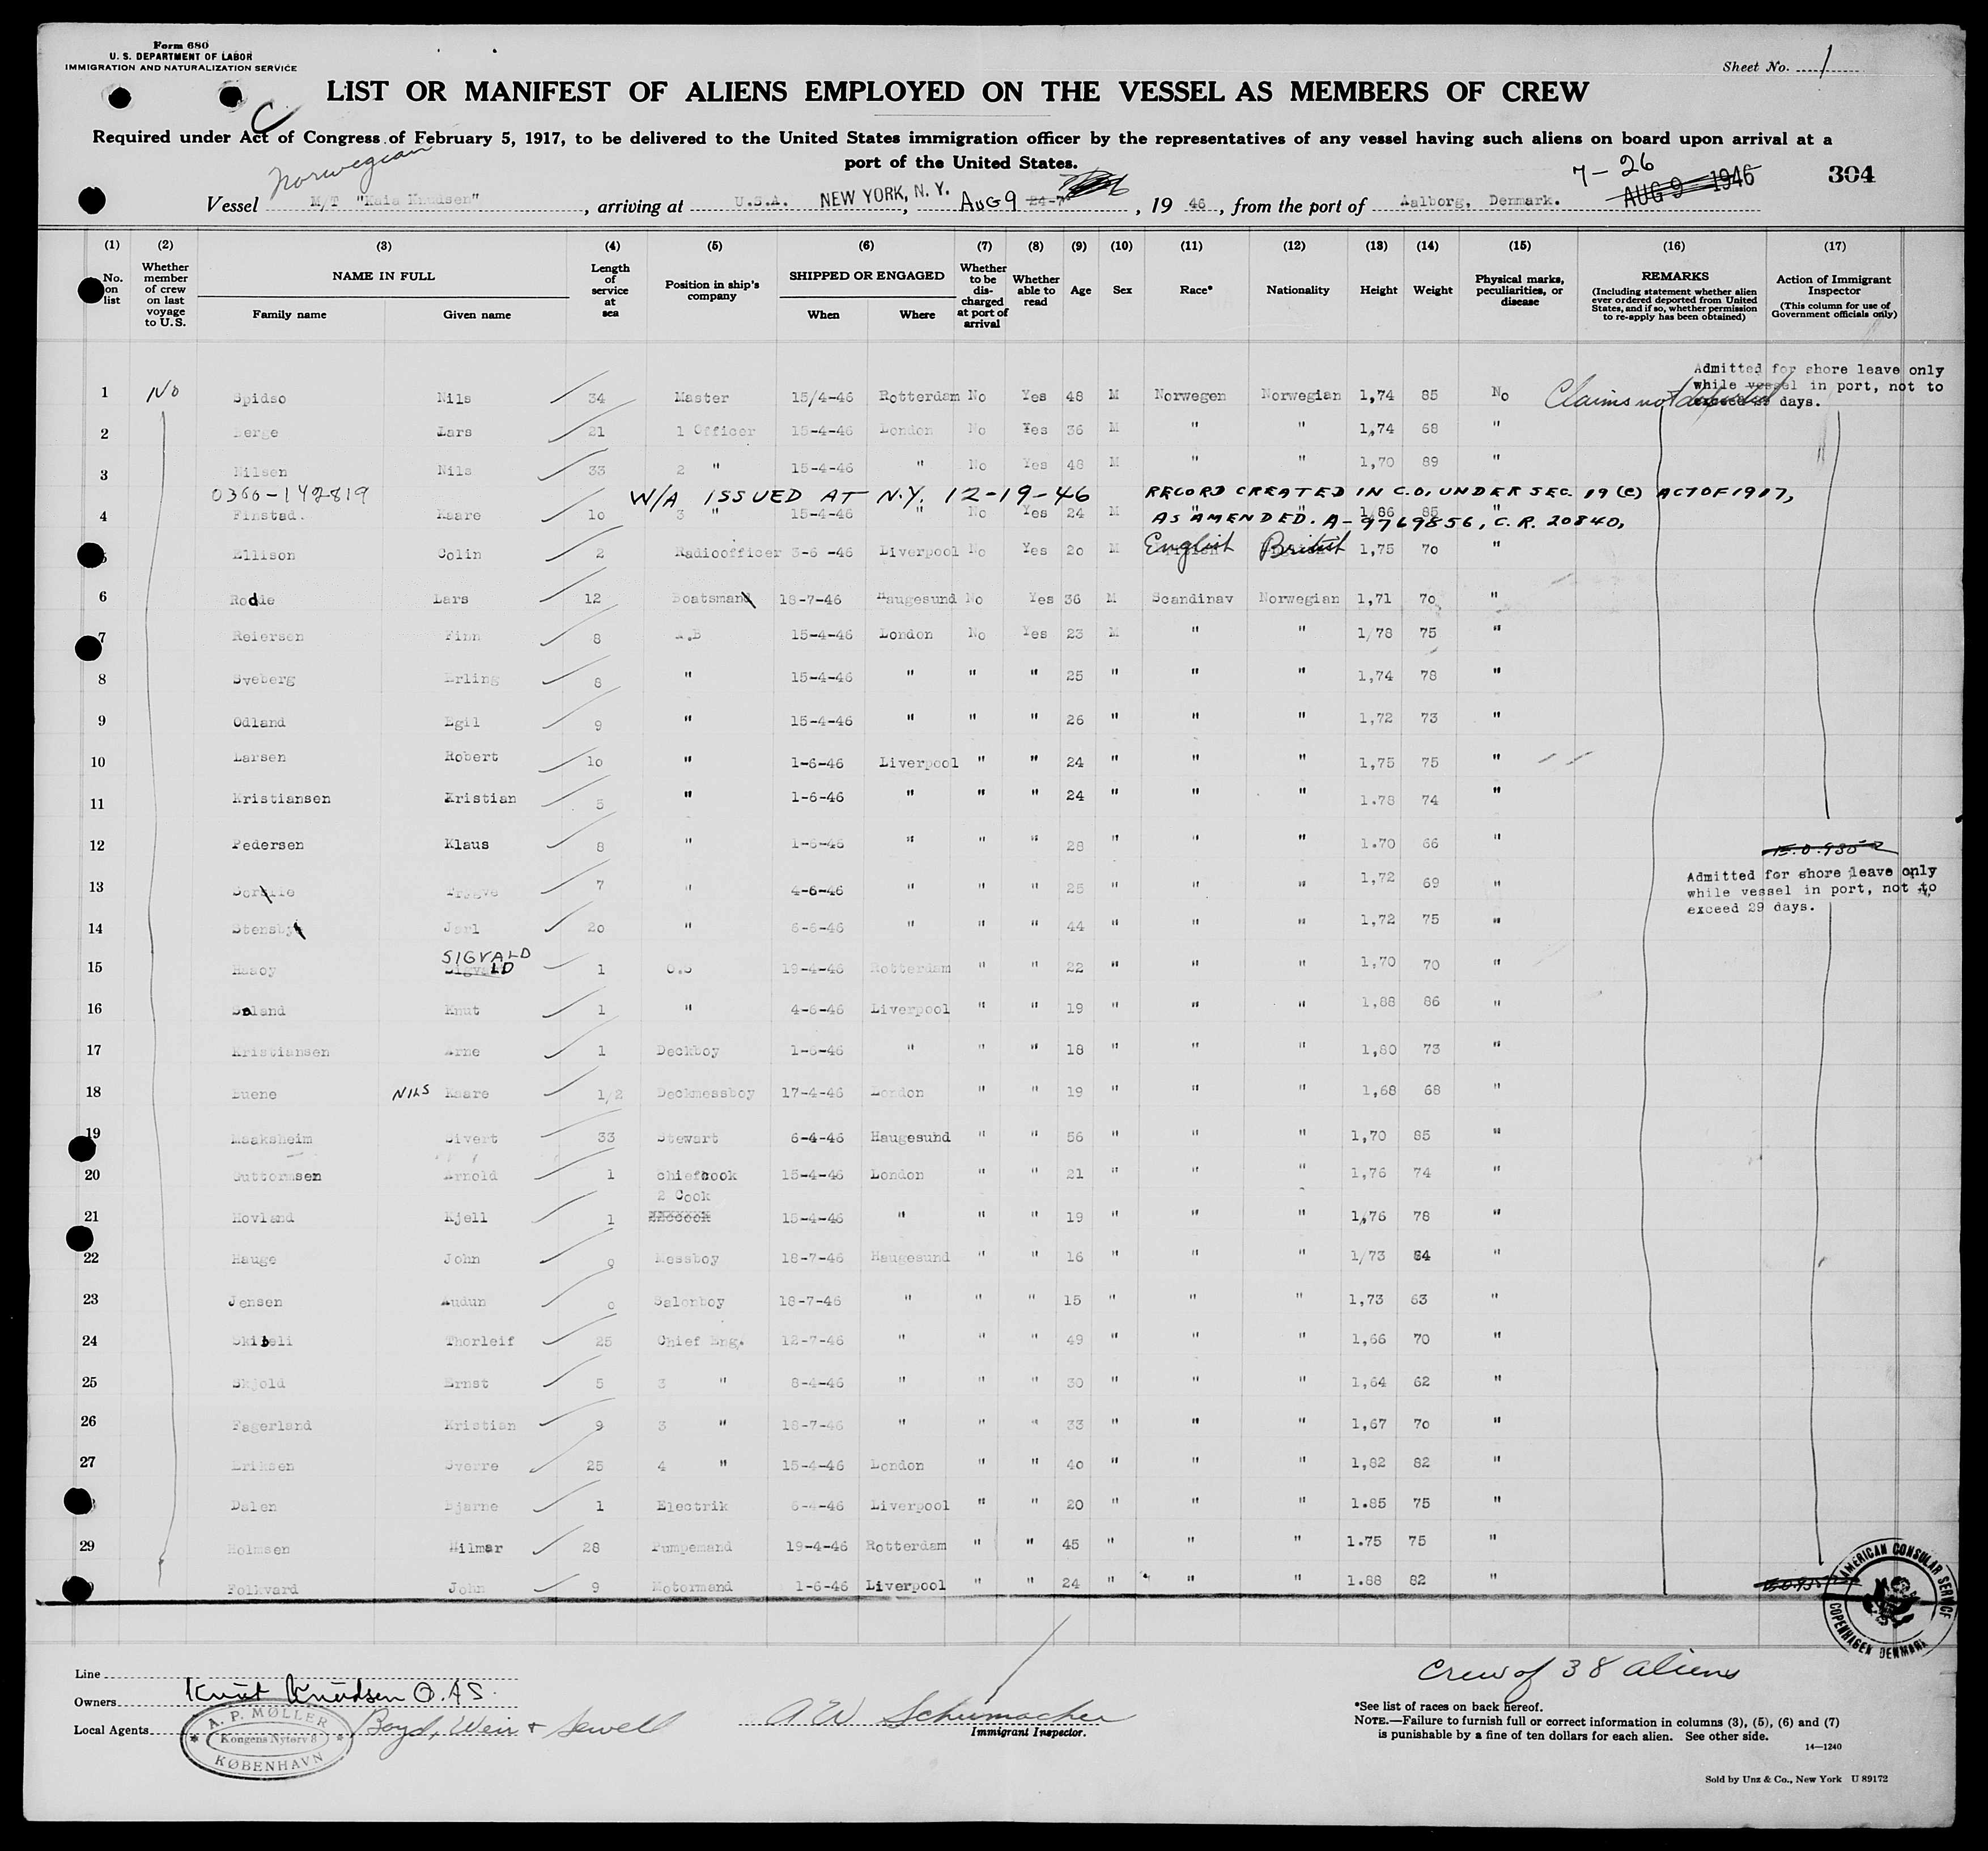 Form 680
U. S. DEPARTMENT OF LABOR
IMMIGRATION AND NATURALIZATION SERVICE
Sheet No. 1
LIST OR MANIFEST OF ALIENS EMPLOYED ON THE VESSEL AS MEMBERS OF CREW
C
Required under Act of Congress of February 5, 1917, to be delivered to the United States immigration officer by the representatives of any vessel having such aliens on board upon arrival at a
port of the United States.
Norwegian
7-26
304
Vessel M/T "Kaia Knudsen", arriving at U.S.A. NEW YORK, N. Y., AUG 9 24-7, 19 46, from the port of Aalborg, Denmark. AUG 9 - 1946
(1) (2) (3) (4) (5) (6) (7) (8) (9) (10) (11) (12) (13) (14) (15) (16) (17)
No. on list
Whether member of crew on last voyage to U.S.
NAME IN FULL
Family name Given name
Length of service at sea
Position in ship's company
SHIPPED OR ENGAGED
When Where
Whether to be discharged at port of arrival
Whether able to read
Age Sex Race* Nationality Height Weight
Physical marks, peculiarities, or disease
REMARKS
(Including statement whether alien ever ordered deported from United States, and if so, whether permission to re-apply has been obtained)
Action of Immigrant Inspector
(This column for use of Government officials only)
Admitted for shore leave only
while vessel in port, not to
exceed 29 days.
1 No Spidso Nils 34 Master 15/4-46 Rotterdam No Yes 48 M Norwegen Norwegian 1,74 85 No Claims not deported
2 Berge Lars 21 1 Officer 15-4-46 London No Yes 36 M " " 1,74 68 "
3 Nilsen Nils 33 2 " 15-4-46 " No Yes 48 M " " 1,70 89 "
0366-142819 W/A ISSUED AT N.Y. 12-19-46 RECORD CREATED IN C.O. UNDER SEC. 19 (C) ACT OF 1917,
4 Finstad. Kaare 10 3 " 15-4-46 " No Yes 24 M " " 1,86 85 "
AS AMENDED. A-9769856, C.R. 20840,
5 Ellison Colin 2 Radioofficer 3-6 -46 Liverpool No Yes 20 M English British 1,75 70 "
6 Rodle Lars 12 Boatsmand 18-7-46 Haugesund No Yes 36 M Scandinav Norwegian 1,71 70 "
7 Reiersen Finn 8 A.B 15-4-46 London No Yes 23 M " " 1/78 75 "
8 Sveberg Erling 8 " 15-4-46 " " " 25 " " " 1,74 78 "
9 Odland Egil 9 " 15-4-46 " " " 26 " " " 1,72 73 "
10 Larsen Robert 10 " 1-6-46 Liverpool " " 24 " " " 1,75 75 "
11 Kristiansen Kristian 5 " 1-6-46 " " " 24 " " " 1.78 74 "
12 Pedersen Klaus 8 " 1-6-46 " " " 28 " " " 1.70 66 "
Admitted for shore leave only
while vessel in port, not to
exceed 29 days.
13 Trygve 7 " 4-6-46 " " " 25 " " " 1,72 69 "
14 Stensby Jarl 20 " 6-6-46 " " " 44 " " " 1,72 75 "
SIGVALD
15 Hasoy Sigvald 1 O.S 19-4-46 Rotterdam " " 22 " " " 1,70 70 "
16 Saland Knut 1 " 4-6-46 Liverpool " " 19 " " " 1,88 86 "
17 Kristiansen Arne 1 Deckboy 1-6-46 " " " 18 " " " 1,80 73 "
18 Buene NILS Kaare 1/2 Deckmessboy 17-4-46 London " " 19 " " " 1,68 68 "
19 Maaksheim Sivert 33 Stewart 6-4-46 Haugesund " " 56 " " " 1,70 85 "
20 Guttormsen Arnold 1 chiefcook 15-4-46 London " " 21 " " " 1,76 74 "
2 Cook
21 Hovland Kjell 1 15-4-46 " " " 19 " " " 1,76 78 "
22 Hauge John 0 Messboy 18-7-46 Haugesund " " 16 " " " 1/73 64 "
23 Jensen Audun 0 Salonboy 18-7-46 " " " 15 " " " 1,73 63 "
24 Skibeli Thorleif 25 Chief Eng. 12-7-46 " " " 49 " " " 1,66 70 "
25 Skjold Ernst 5 3 " 8-4-46 " " " 30 " " " 1,64 62 "
26 Fagerland Kristian 9 3 " 18-7-46 " " " 33 " " " 1,67 70 "
27 Eriksen Sverre 25 4 " 15-4-46 London " " 40 " " " 1,82 82 "
Dalen Bjarne 1 Electrik 6-4-46 Liverpool " " 20 " " " 1.85 75 "
29 Holmsen Hilmar 28 Pumpemand 19-4-46 Rotterdam " " 45 " " " 1.75 75 "
Folkvard John 9 Motormand 1-6-46 Liverpool " " 24 " " " 1.88 82 "
AMERICAN CONSULAR SERVICE COPENHAGEN DENMARK
Line
Owners Knut Knudsen O.A.S.
Local Agents Boyd, Weir & Sewell
A. P. MØLLER
Kongens Nytorv 8
KØBENHAVN
A W Schumacher
Immigrant Inspector.
Crew of 38 aliens
*See list of races on back hereof.
NOTE.—Failure to furnish full or correct information in columns (3), (5), (6) and (7)
is punishable by a fine of ten dollars for each alien. See other side.
14—1240
Sold by Unz & Co., New York U 89172